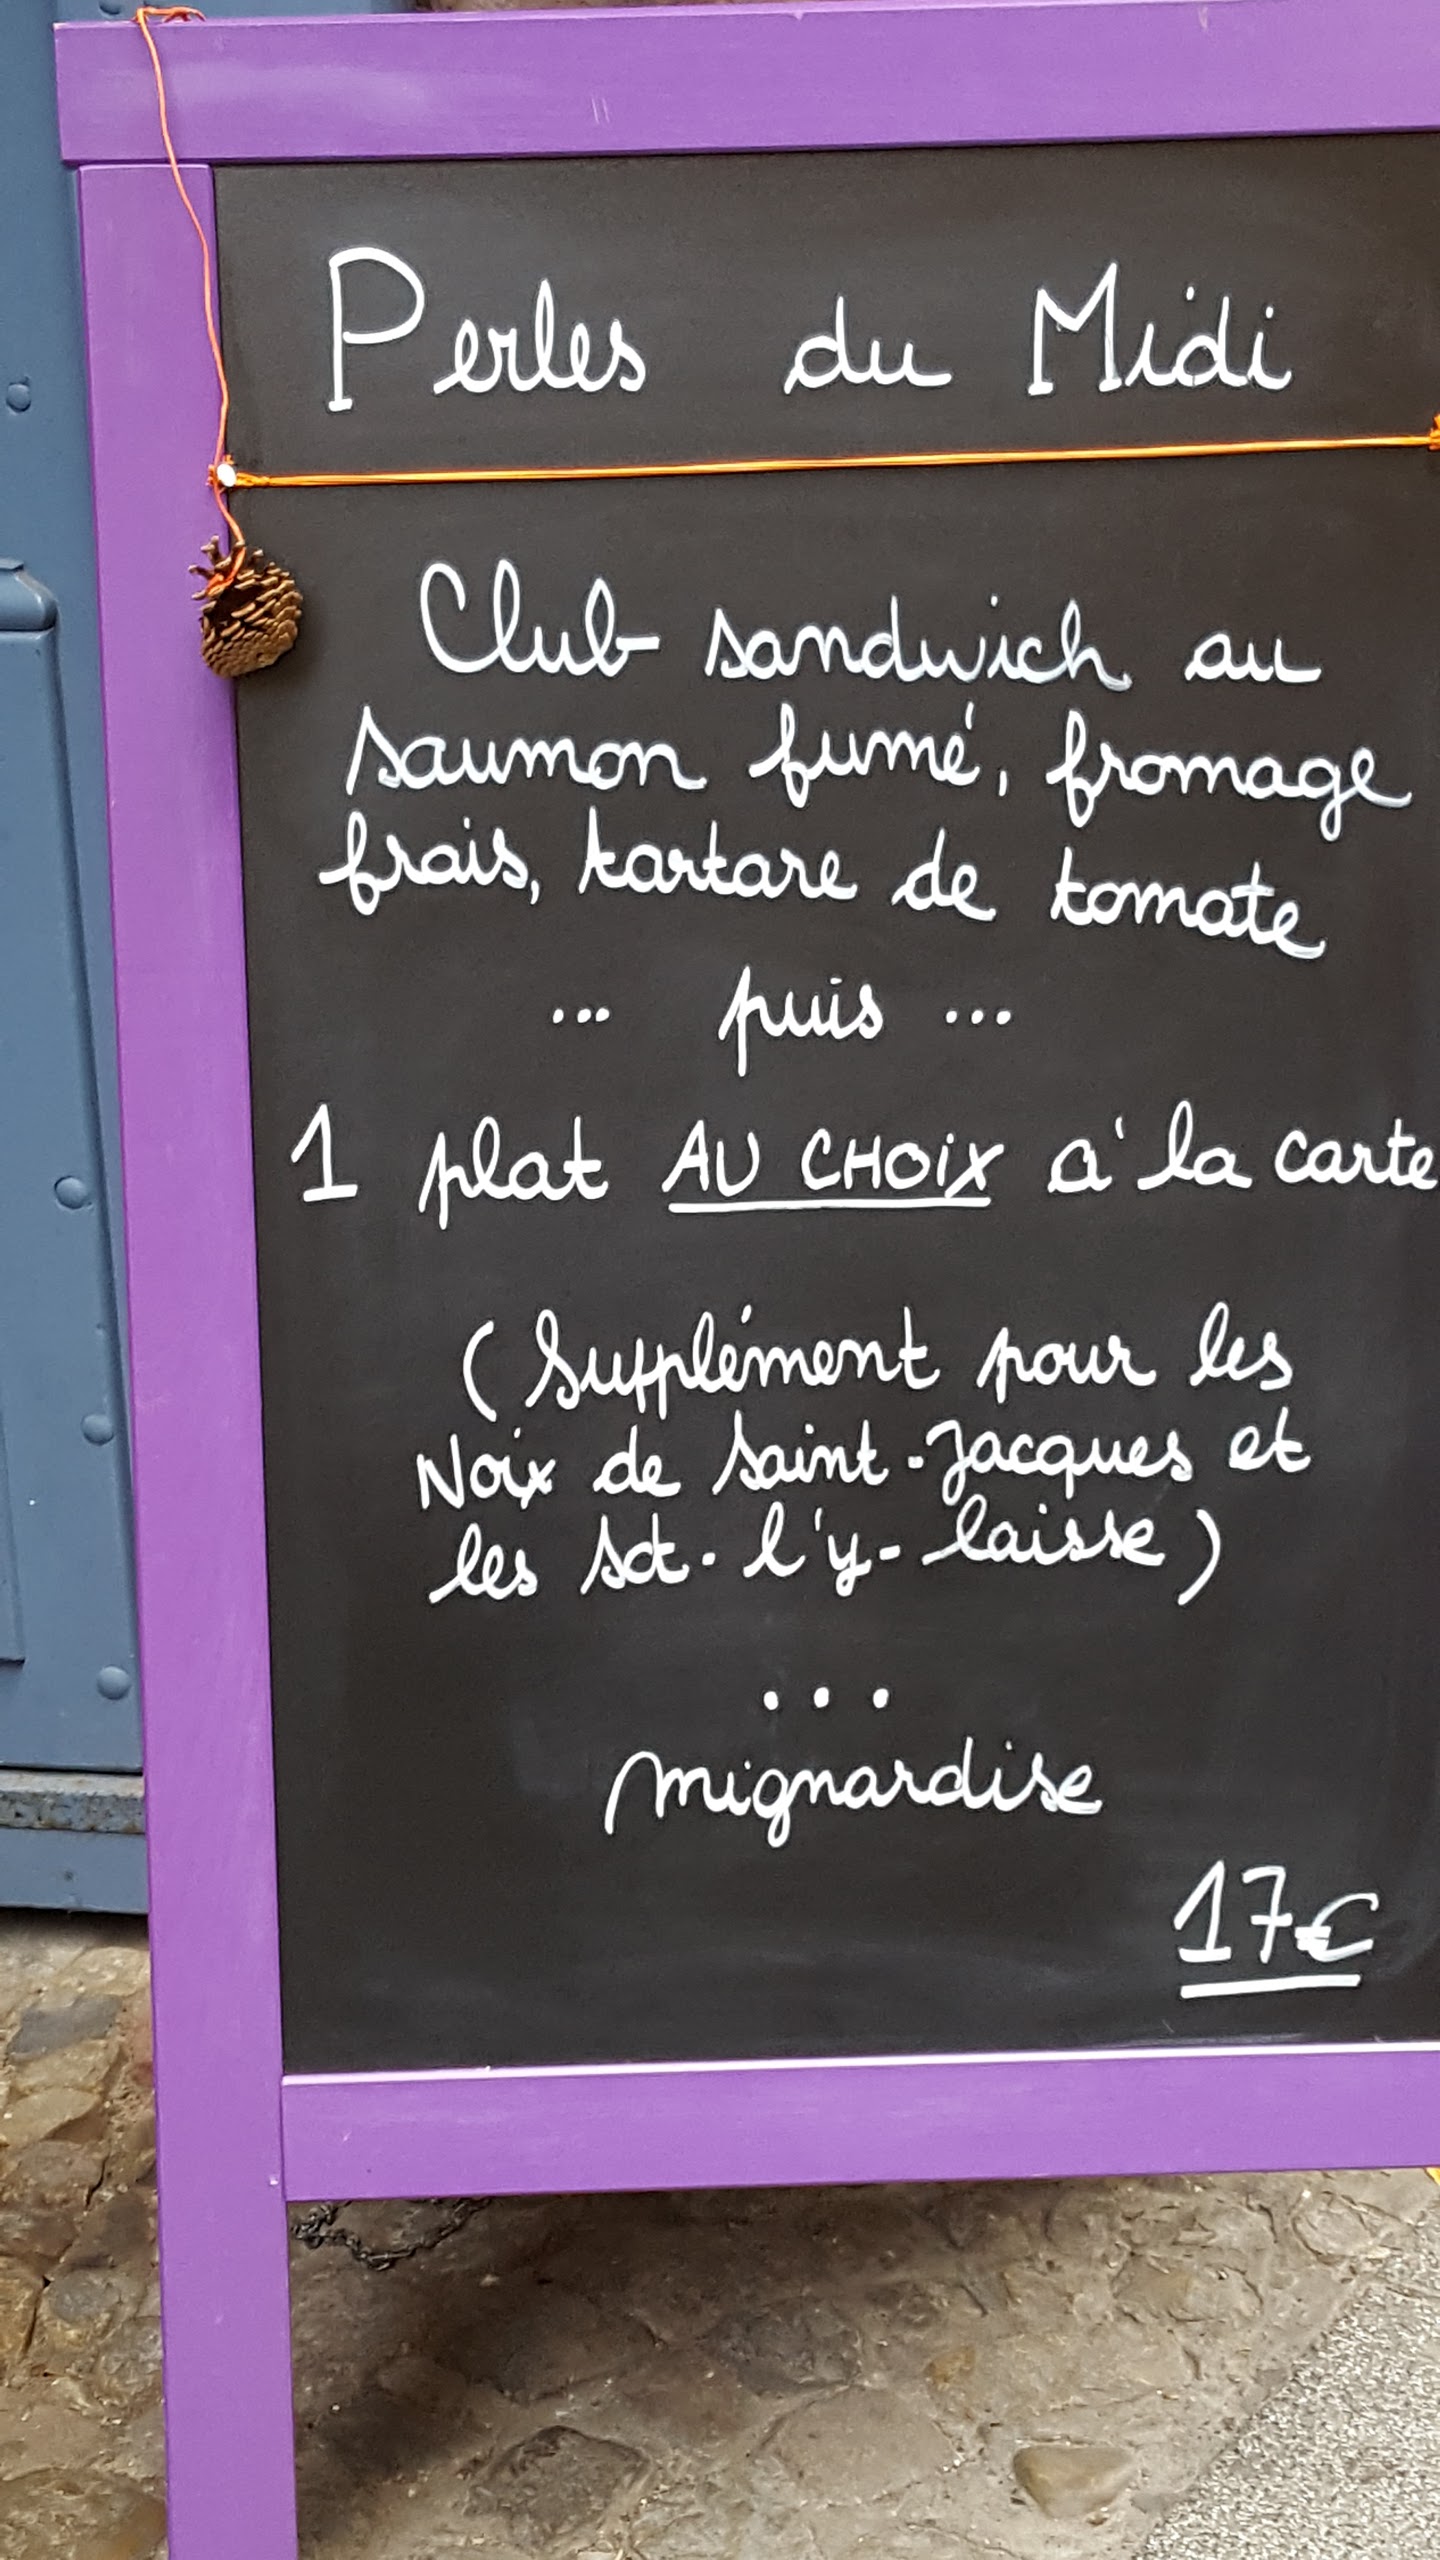 Perles du Midi
Club sandwich au
saumon fumé, fromage
frais, tartare de tomate
... puis ...
1 plat AU CHOIX à la carte
(Supplément pour les
Noix de Saint-Jacques et
les sot-l'y-laisse)
...
mignardise
17€